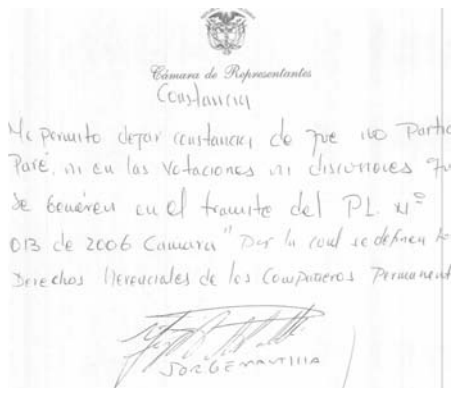 Cámara de Representantes
Constancia
Me permito dejar constancia de que no Partic
Paré, ni en las votaciones ni discusiones qu
se generen en el tramite del PL. Nº
013 de 2006 Camara "Por la cual se definen lo
Derechos Herenciales de los Compañeros Permanent
JORGE MANTILLA